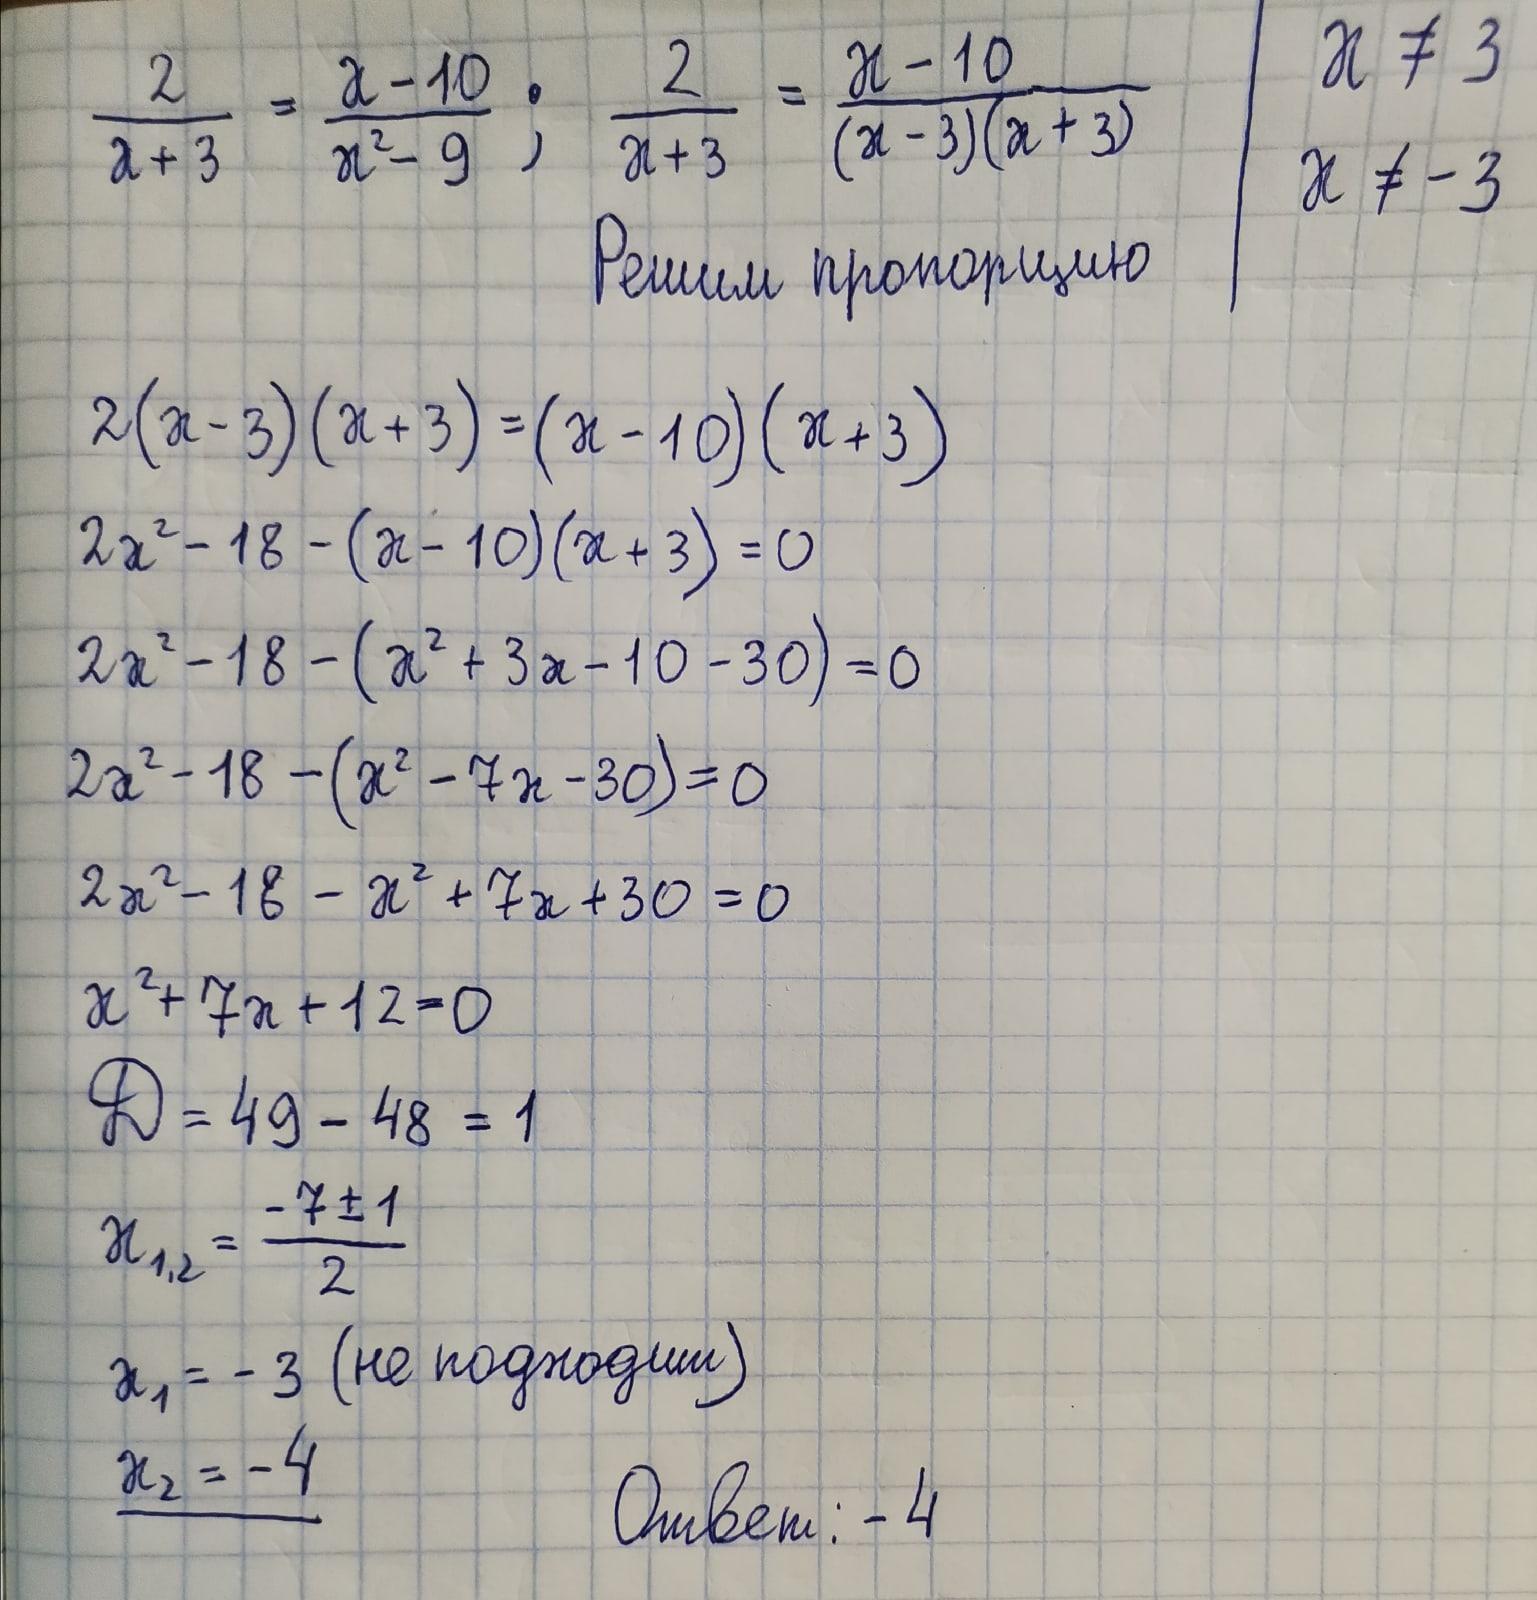 2/(x+3) = (x-10)/(x²-9); 2/(x+3) = (x-10)/((x-3)(x+3))
x ≠ 3
x ≠ -3
Решим пропорцию
2(x-3)(x+3)=(x-10)(x+3)
2x²-18-(x-10)(x+3)=0
2x²-18-(x²+3x-10-30)=0
2x²-18-(x²-7x-30)=0
2x²-18-x²+7x+30=0
x²+7x+12=0
D=49-48=1
x₁,₂=(-7±1)/2
x₁=-3 (не подходит)
x₂=-4
Ответ: -4